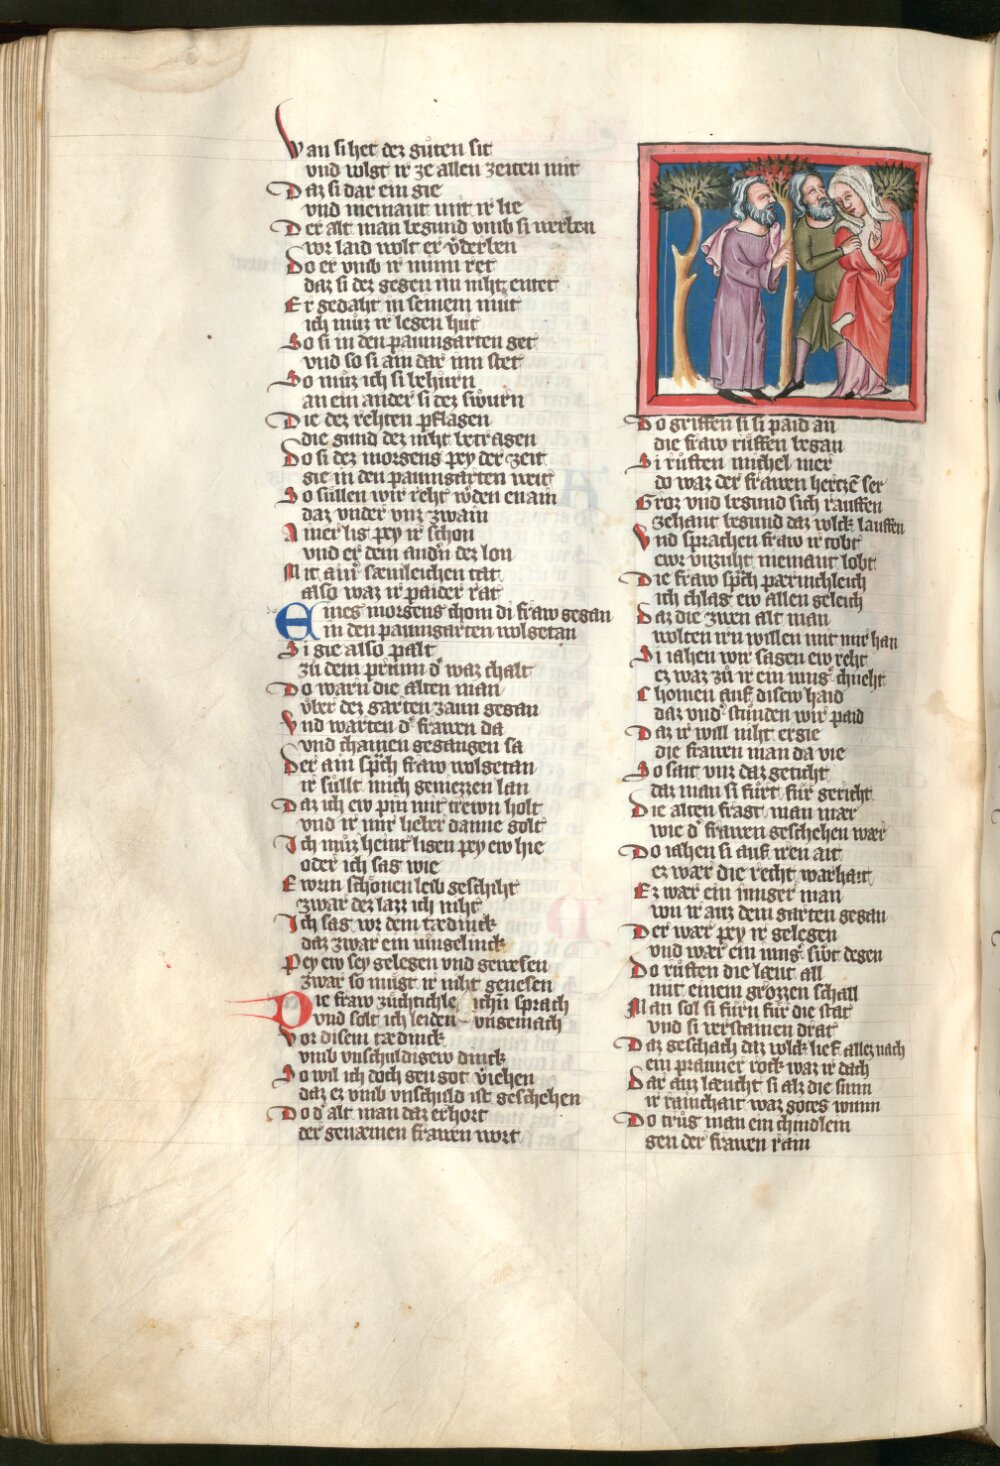 Wan si het der gůten sit
vnd wist ir ze allen zeiten mit
Daz si dar ein gie
vnd niemant mit ir lie
Der alt man begund vmb si werben
vor laid wolt er v̓derben
Do er vmb ir minn ret
daz si der gegen nu niht entet
Er gedaht in seinem mut
ich můz ir legen hůt
So si in den paumgarten get
vnd so si ain dar inn stet
So můz ich si behůrn
an ein ander si dez swůrn
Die der rehten pflagen
die gund der niht betragen
So si dez morgens pey der zeit
gie in den paumgarten weit
So süllen wir reht w̓den enain
daz vnder vnz zwain
Ainer lig pey ir schon
vnd er dem and̓n dez lon
Mit ain̓ sæmleichen tat
also waz ir paider rat
Eines morgens chom di fraw gegan
in den paumgarten wolgetan
Si gie also palt
zů dem prunn d̓ waz chalt
Do warn die alten man
v̓ber dez garten zaun gegan
Vnd warten d̓ frawen da
vnd chamen gegangen sa
Der ain sp̓ch fraw wolgetan
ir süllt mich geniezzen lan
Daz ich ew pin mit trewn holt
vnd ir mir lieber danne golt
Ich můz heint ligen pey ew hie
oder ich sag wie
Ewrm schönen leib geschiht
zwar dez lazz ich niht
Ich sag vor dem tædinck
daz zwar ein iungelinck
Pey ew sey gelegen vnd gewesen
zwar so mügt ir niht genesen
Die fraw züchtichleichn̄ sprach
vnd solt ich leiden vngemach
Vor disem tædinck
vmb vnschuldigew dinck
So wil ich doch gen got v̓iehen
daz ez vmb vnschuld ist geschehen
Do d̓ alt man daz erhort
der genæmen frawen wort
Do griffen si si paid an
die fraw růffen began
Si růften michel mer
do waz der frawen hertzē ser
Groz vnd begund sich rauffen
zehant begund daz volck lauffen
Vnd sprachen fraw ir tobt
ewr vnzuht niemant lobt
Die fraw sp̓ch pærmchleich
ich chlag ew allen geleich
Daz die zwen alt man
wolten irn willen mit mir han
Si iahen wir sagen ew reht
ez waz zů ir ein iung̓ chneht
Chomen auf disew haid
daz vnd̓ stůnden wir paid
Daz ir will niht ergie
die frawen man da vie
So sait vnz daz geticht
daz man si fůrt für gericht
Die alten fragt man mær
wie d̓ frawen geschehen wær
Do iahen si auf iren ait
ez wær die recht warhait
Ez wær ein iunger man
von ir auz dem garten gegan
Der wær pey ir gelegen
vnd wær ein iung̓ ... degen
Do růften die læut all
mit einem grozzen schall
Man sol si fůrn für die stat
vnd si verstainen drat
Daz geschach daz volck lief allez nach
ein prauner rock waz ir dach
Dar auz læucht si alz die sunn
ir rainchait waz gotes wunn
Do trůg man ein chindlein
gen der frawen rain